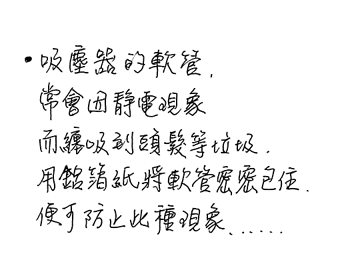 •吸塵器的軟管,
常會因靜電現象
而纏吸到頭髮等垃圾.
用鋁箔紙將軟管密密包住.
便可防止此種現象......